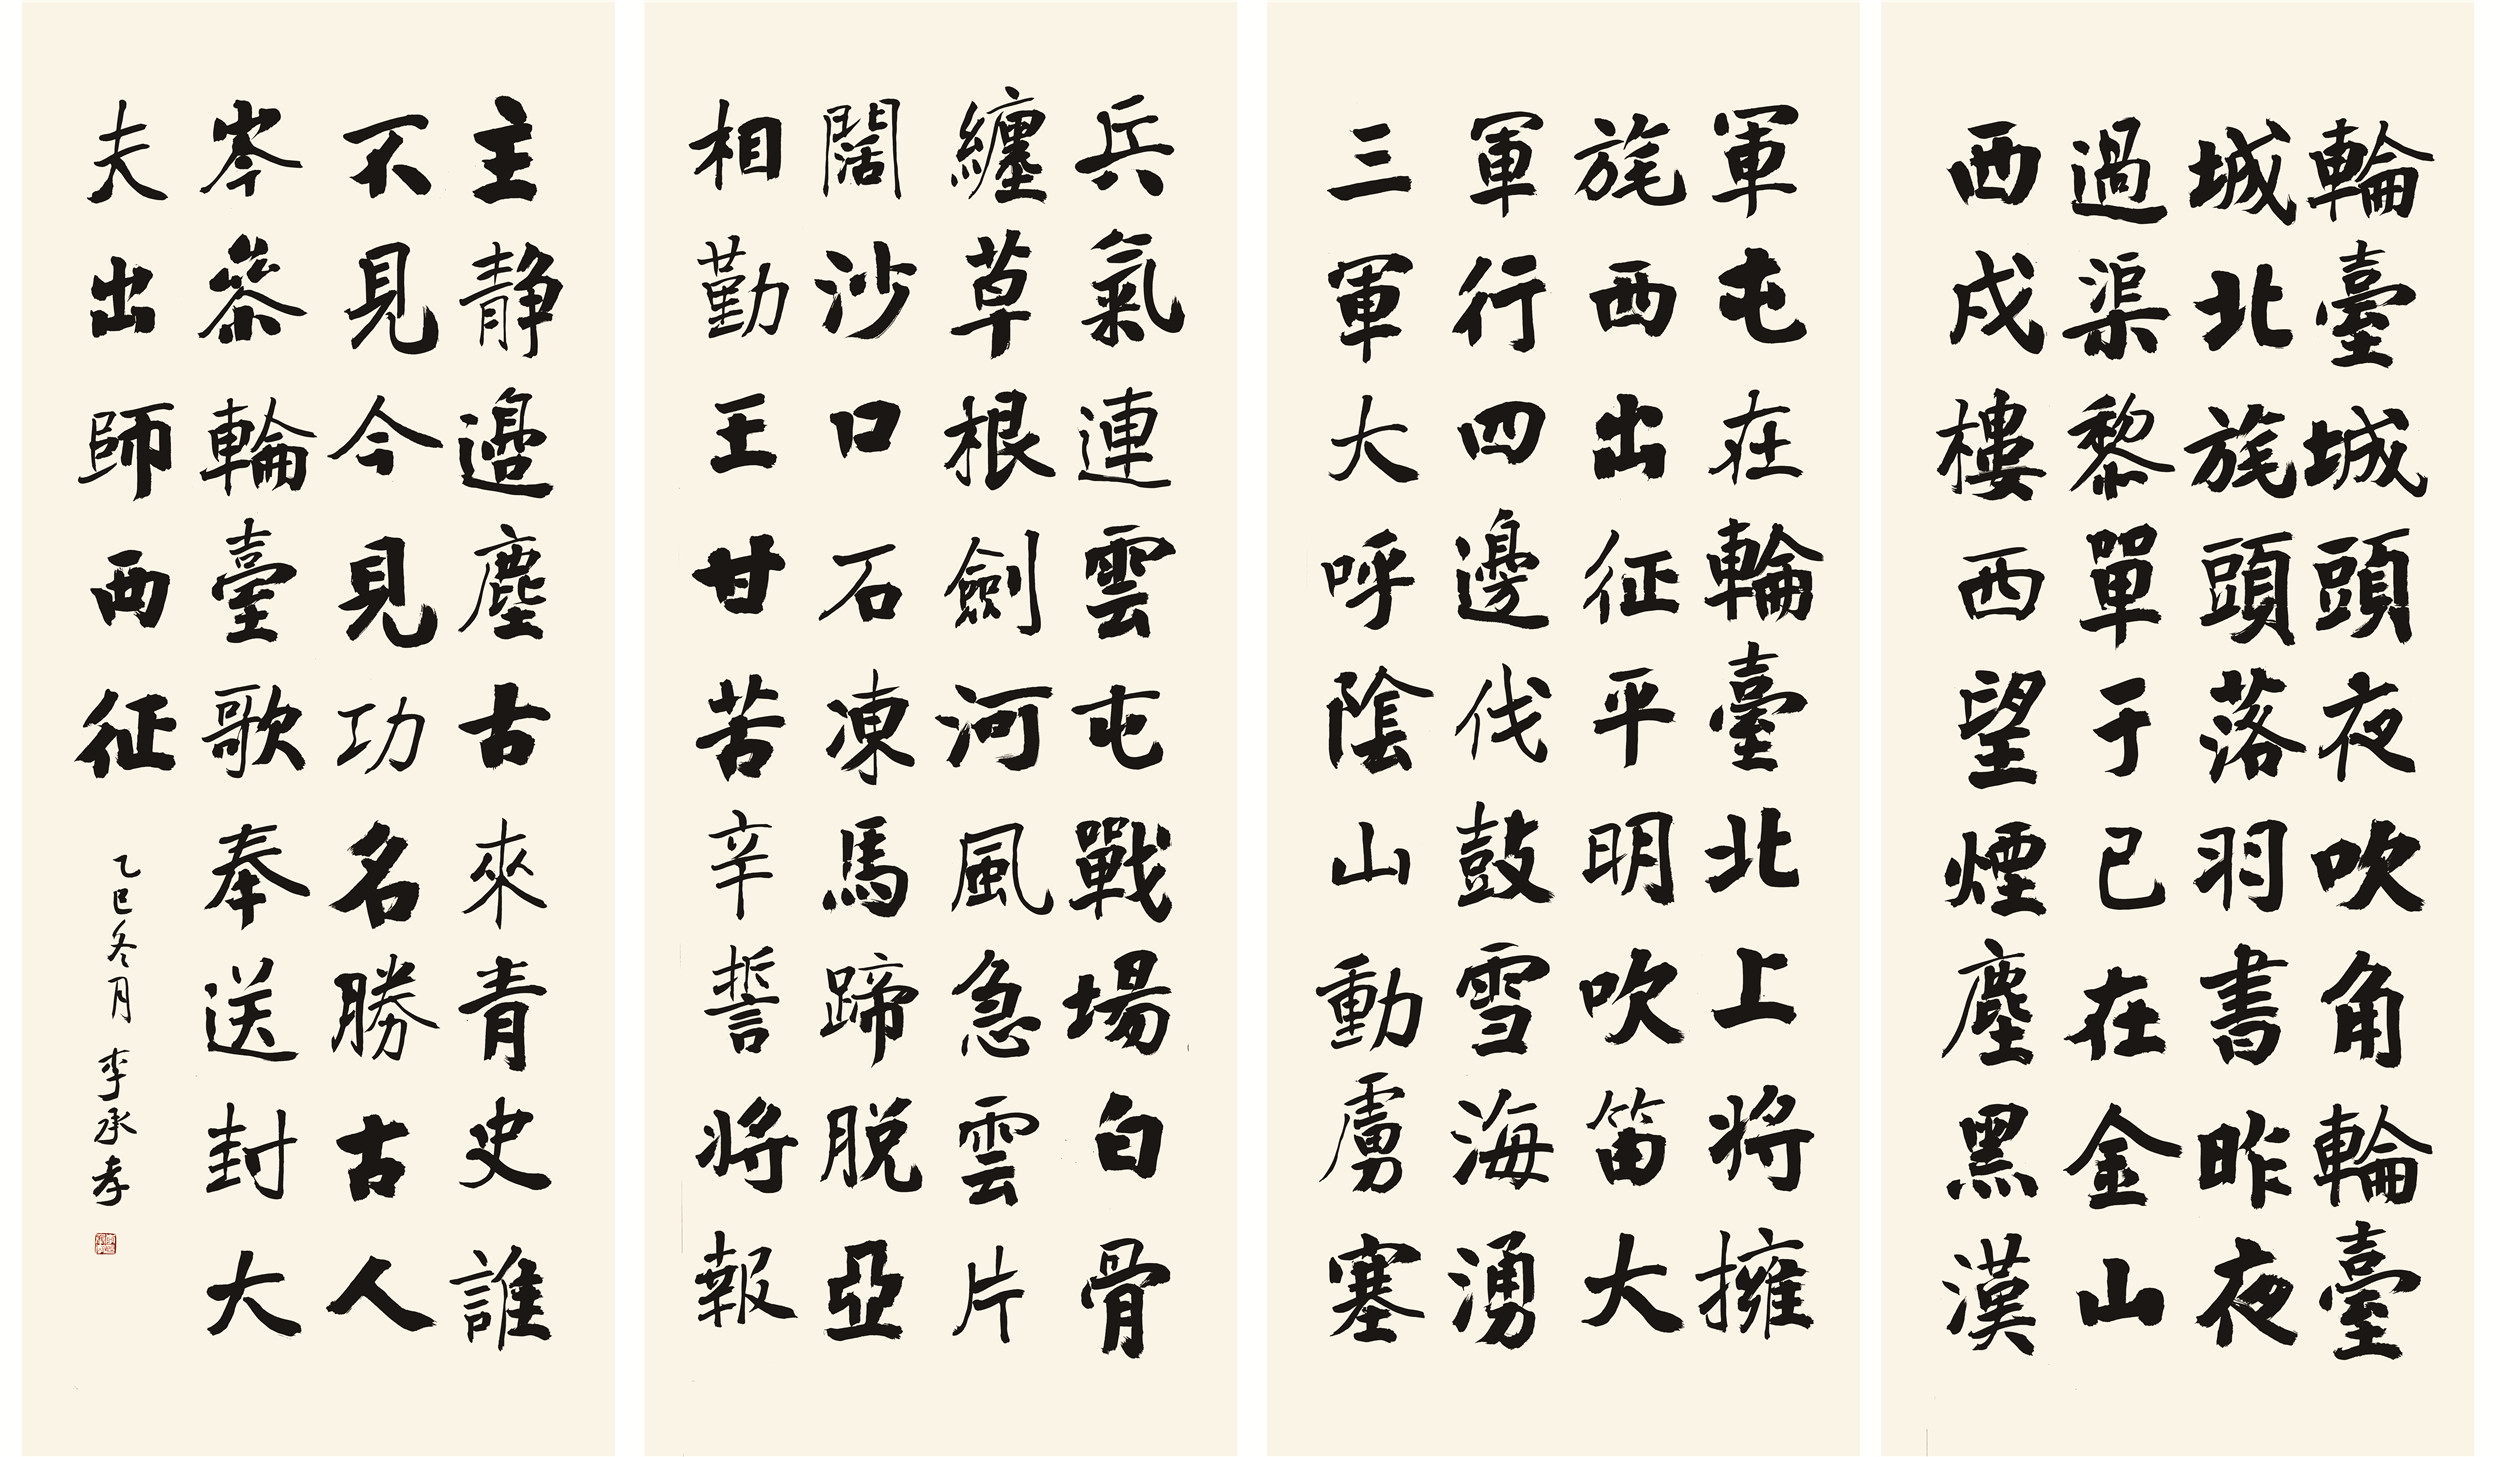 輪臺城頭夜吹角輪臺
城北旄頭落羽書昨夜
過渠黎單于已在金山
西戍樓西望煙塵黑漢
軍屯在輪臺北上將擁
旄西出征平明吹笛大
軍行四邊伐鼓雪海湧
三軍大呼陰山動虜塞
兵氣連雲屯戰場白骨
纏草根劍河風急雲片
闊沙口石凍馬蹄脫亞
相勤王甘苦辛誓將報
主静邊塵古來青史誰
不見今見功名勝古人
岑參輪臺歌奉送封大
夫出師西征
乙巳冬月 李承孝